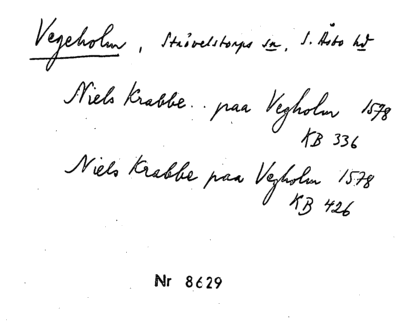 Vegeholm, Strövelstorps sn, S. Åsbo hd
Niels Krabbe.. paa Vegholm 1578
KB 336
Niels Krabbe paa Vegholm 1578
KB 426
Nr 8629